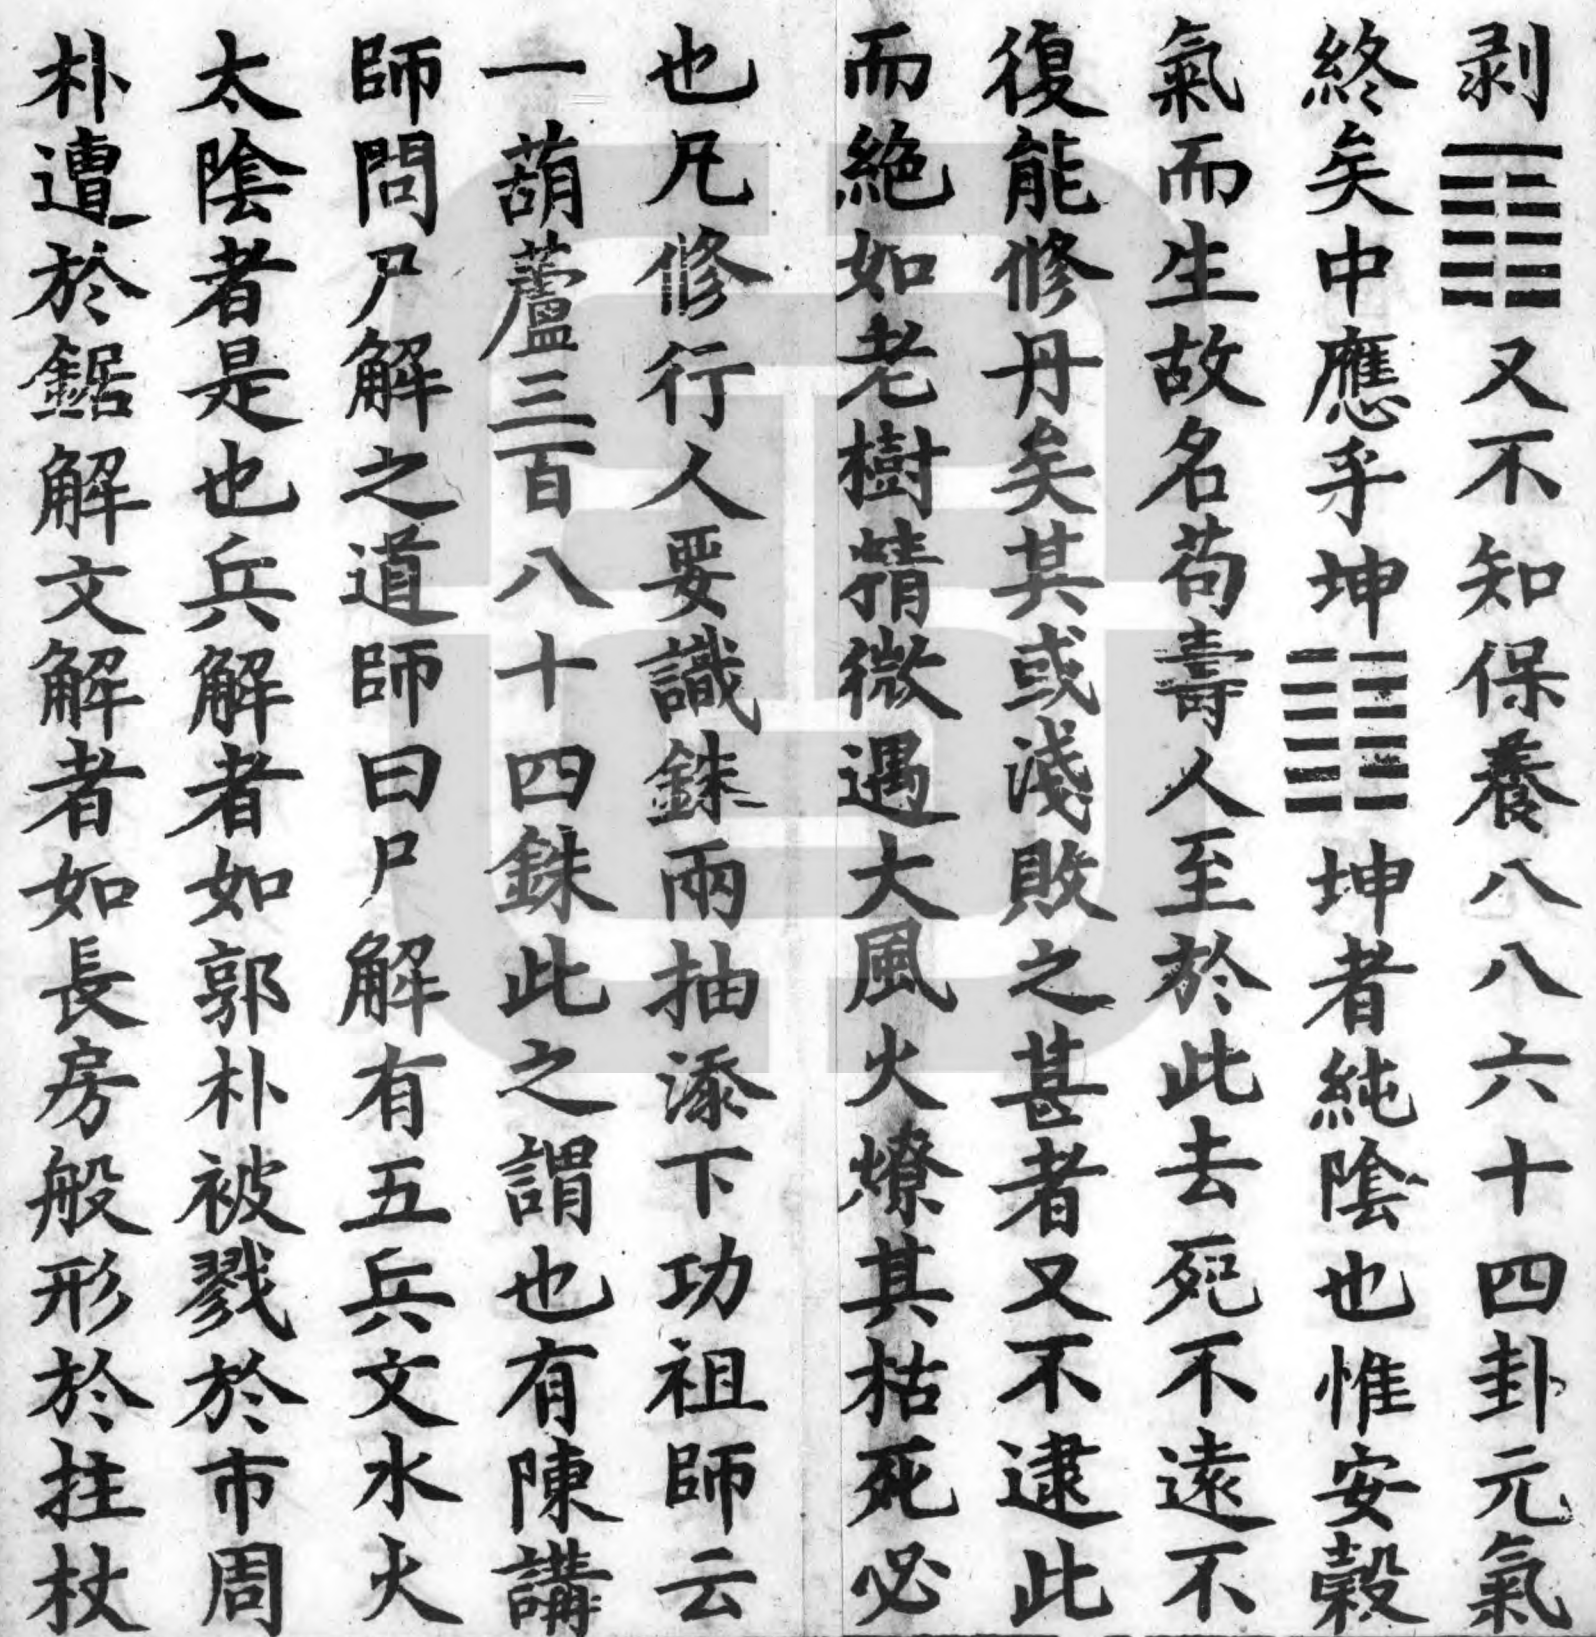 剥䷖又不知保養八八六十四卦元氣
終矣中應乎坤䷁坤者純陰也惟安穀
氣而生故名苟壽人至於此去死不遠不
復能修丹矣其或淺敗之甚者又不逮此
而絶如老樹精微遇大風火燎其枯死必
也凡修行人要識銖兩抽添下功祖師云
一葫蘆三百八十四銖此之謂也有陳講
師問尸解之道師曰尸解有五兵文水火
太陰者是也兵解者如郭朴被戮於市周
朴遭於鋸解文解者如長房般形於拄杖